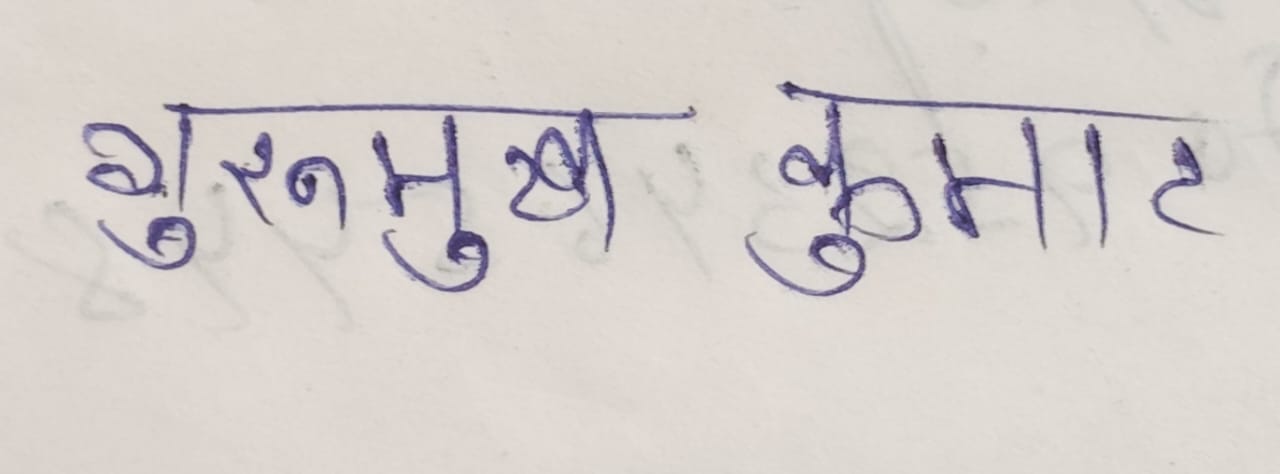 गुरुमुख कुमार